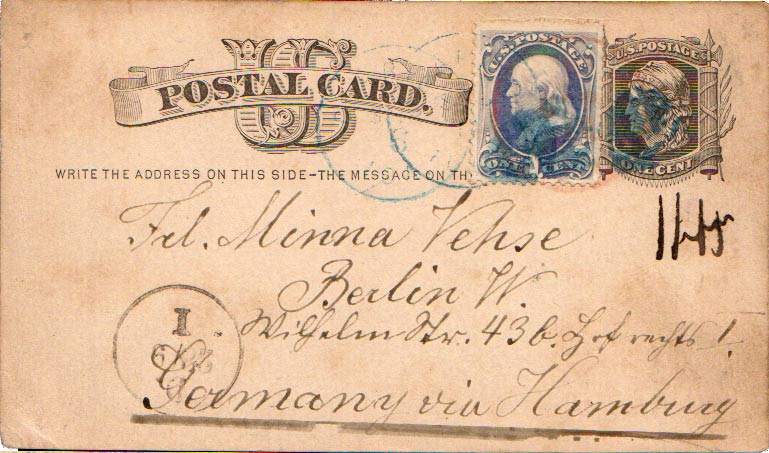 U.S. POSTAGE
U.S. POSTAGE
US
POSTAL CARD.
ONE 1 CENT
ONE CENT
WRITE THE ADDRESS ON THIS SIDE-THE MESSAGE ON TH
Frl. Minna Vehse
Berlin W.
Wilhelm Str. 43b. Hof rechts I.
I
Germany via Hamburg